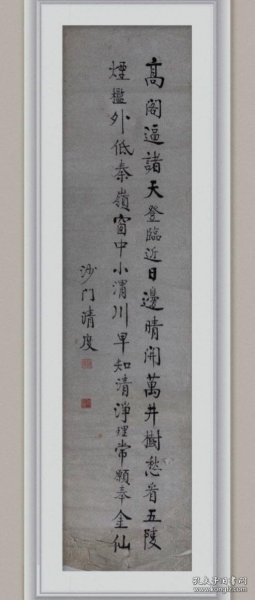 高阁逼諸天登臨近日邊晴開萬井樹愁看五陵
煙檻外低秦嶺窗中小渭川早知清淨理常願奉金仙
沙门清度
孔夫子旧书网